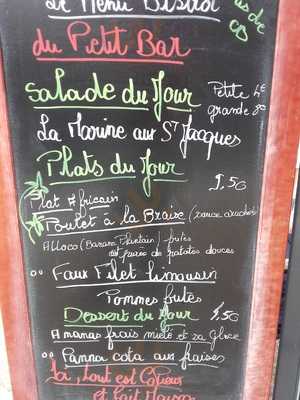 Le Menu Bistrot
du Petit Bar
Salade du Jour
Petite 4€
grande 8€
La Marine aux St Jacques
Plats du Jour
9.50
Plat Africain
Poulet à la Braise (sauce arachide)
Alloco (Banane Plantain) frites
ou purée de patates douces
Faux Filet limousin
Pommes frites
Dessert du Jour 4,50
Ananas frais miélé et sa Glace
Panna cota aux fraises
Ici, tout est Copieux
et Fait Maison